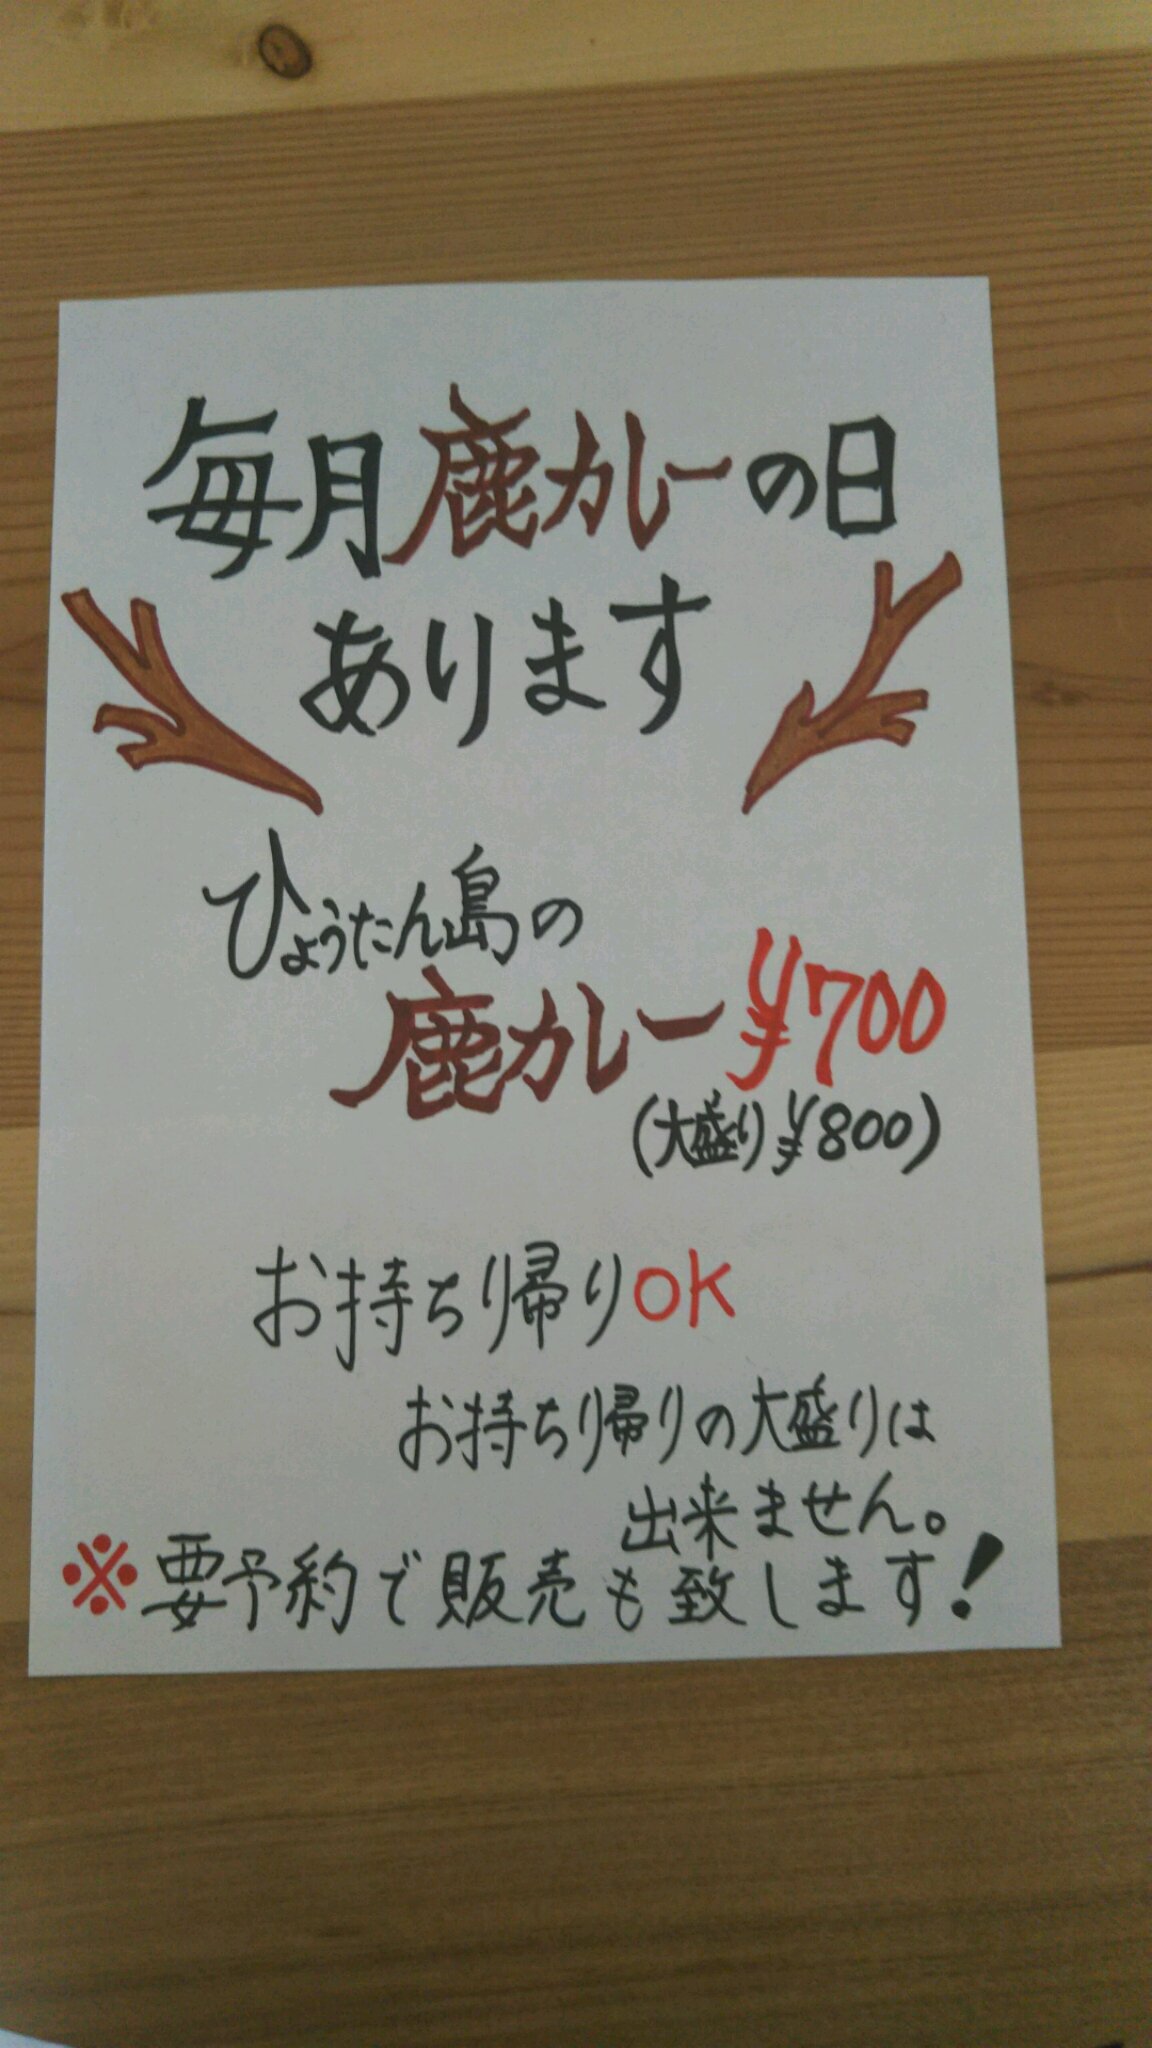 毎月鹿カレーの日
あります
ひょうたん島の
鹿カレー¥700
(大盛り¥800)
お持ち帰りOK
お持ち帰りの大盛りは
出来ません。
※要予約で販売も致します!